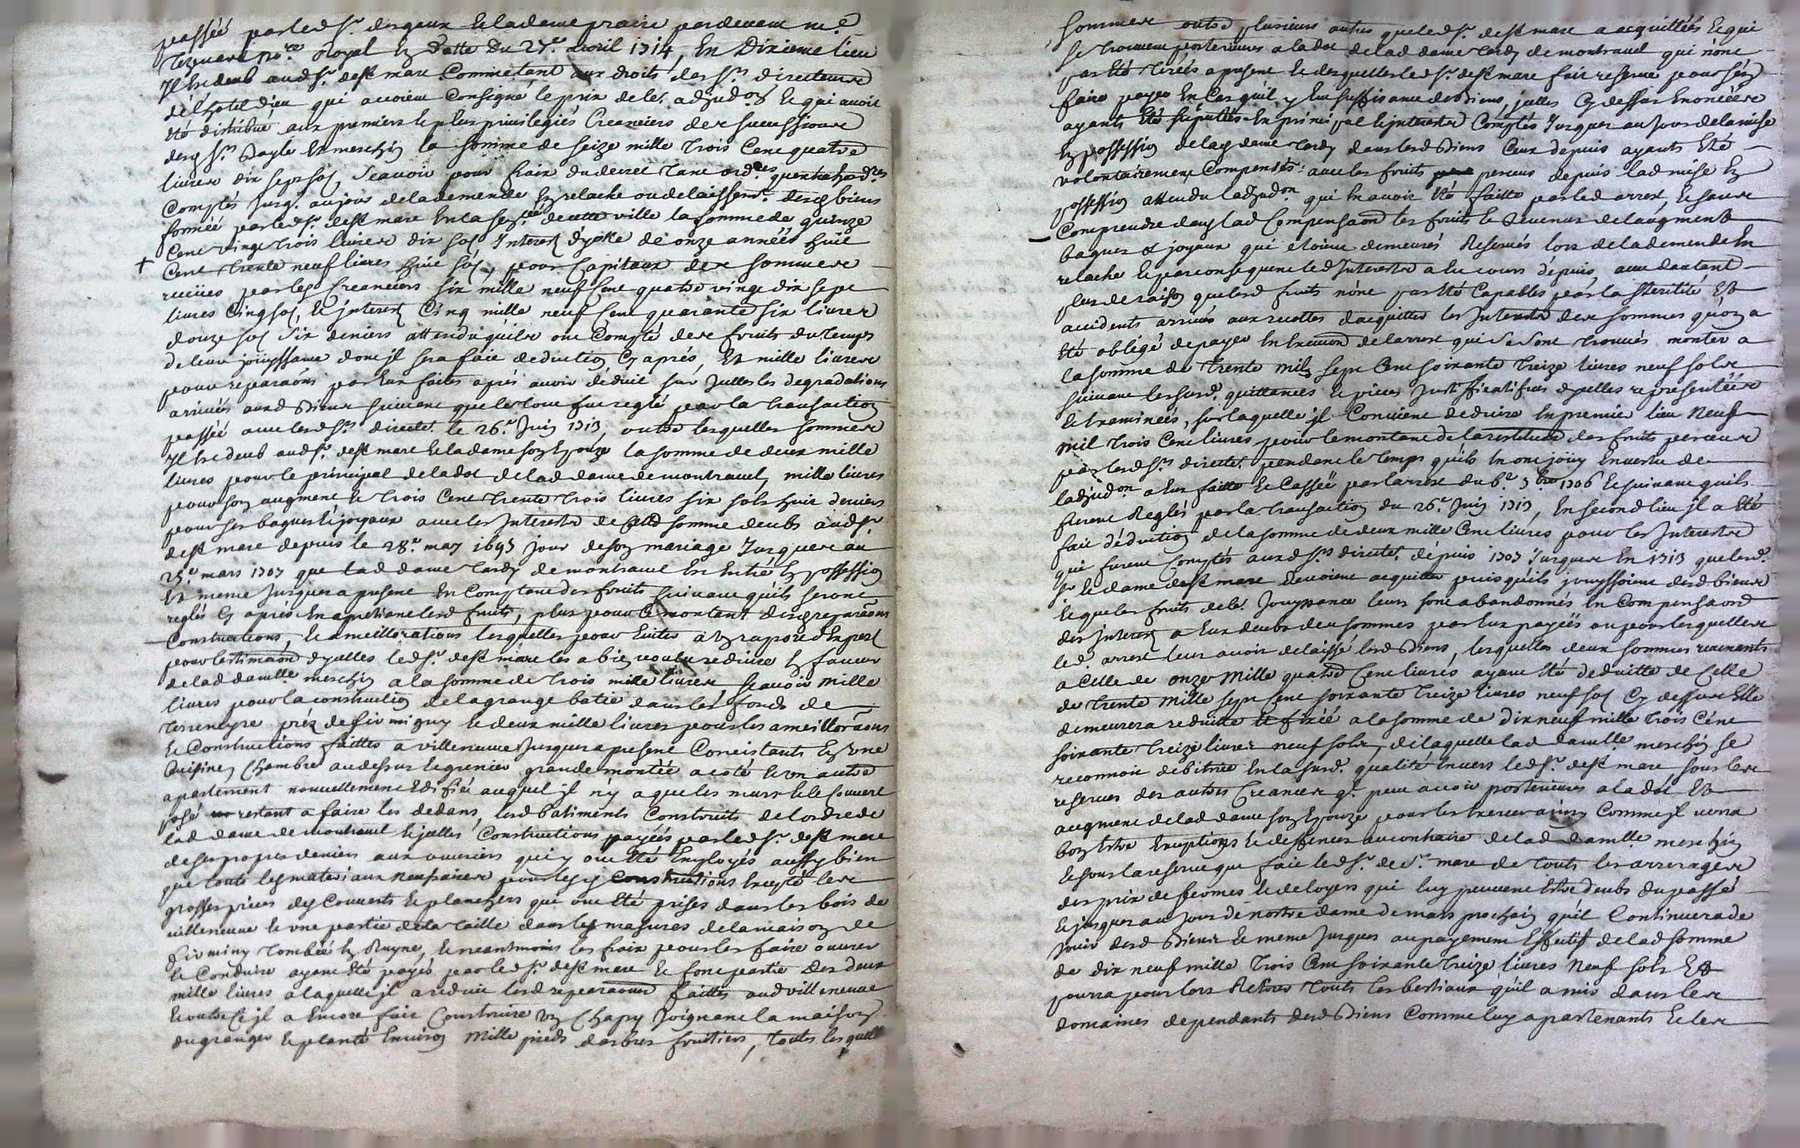 passée par led sr. desgaux et la dame praire pardevant me.
royal en datte du 27e. avril 1714, En Dixieme lieu
Il est deub aud sr. de st mare Comme étant aux droits des srs. directeurs
de l'hotel dieu qui avoient Consigné le prix de les. adjudon. et qui avoit
été distribué aux premiers et plus privilegiés Creanciers des successions
desd srs. et meschin la somme de seize mille trois Cent quatre
livres dix sept sols scavoir pour frais du decret
Comptés jusq. au jour de la demende En relache ou delaissemt. desd biens
formée par led sr. de st mare En la senee. de cette ville la somme de quinze
Cent vingt trois livres dix sols Interest d'icelle de onze années huit
Cent trente neuf livres huit sols, pour Capitaux des sommes
receües par les Creanciers six mille neuf Cent quatre vingt dix sept
livres Cinq sols, et interest Cinq mille neuf Cent quarante six livres
douze sols six deniers attendu qu'ils ont Compté des fruits du temps
de leur jouyssance dont il sera fait deduction Cy après, Et mille livres
pour reparaons par Eux faites après avoir déduit sur Icelles les degradations
arrivées auxd biens suivant que le tout fut reglé par la transaction
passée avec lesd srs. directrs. le 26e. Juin 1713 outre lesquelles sommes
Il est deub aud sr. de st mare et la dame son Epouze la somme de deux mille
livres pour le principal de la dot de lad dame de montravel, mille livres
pour son augment et trois Cent trente trois livres six sols huit deniers
pour ses bagues et joyaux avec les Interests de lad somme deubs aud sr.
de st mare depuis le 28e. may 1695 jour de son mariage Jusques au
25e. mars 1707 que lad dame tardy de montravel est entrée En possession
Et meme jusques a present En Comptant des fruits suivant qu'ils seront
reglés Cy après En apretiant lesd fruits, plus pour le montant des reparaons
Constructions, et ameillorations lesquelles pour Eviter a un raport d'Expert
pour l'estimaon d'ycelles led sr. de st mare les a bien voulu reduire En faveur
de lad damlle meschin a la somme de trois mille livres scavoir mille
livres pour la construction de la grange batie dans les fonds de
terreneyre prez de firmigny et deux mille livres pour les ameilloraons
et Constructions faittes a villeneuve Jusques a present Consistants En une
Cuisine, Chambre au dessus et grenier grande montée a coté et un autre
apartement nouvellement Edifié auquel il n'y a que les murs et le Couvert
posé restant a faire les dedans, lesd batiments Construits de l'ordre de
lad dame de montravel et jcelles Constructions payées par led sr. de st mare
de ses propres deniers aux ouvriers qui y ont été Employés aussy bien
que touts les materiaux necessaires pour lesd constructions Excepté les
grosses pieces des Couverts et planchers qui ont été prises dans les bois de
villeneuve et une partie de la taille dans les masures de la maison de
firminy tombée En Ruyne, et neantmoins les frais pour les faire ouvrer
et Conduire ayant été payés par led sr. de st mare et font partie des deux
mille livres a laquelle il a reduit lesd reparaons faittes aud villeneuve
et outre Ce il a Encore fait Construire un Chapy Joignant la maison
du granger et planté Environ Mille pieds d'arbres fruitiers, toutes lesquelles
sommes outre plusieurs autres que led sr. de st mare a acquittées et qui
se trouvent posterieures a la dot de lad dame tardy de montravel qui n'ont
pas été tirées a present et desquelles led sr. de st mare fait reserve pour s'en
faire payer En Cas qu'il y Eut suffisance de biens, jcelles Cy dessus Enoncées
ayants été En principal et interests Comptés Jusques au Jour de la mise
En possession de lad dame tardy dans lesd biens Ceux depuis ayants été
volontairement Compensés avec les fruits perceus depuis lad mise En
possession attendu ladjudon. qui En avoit été faitte par led arrest, et sans
Comprendre dans lad Compensaon les fruits et revenus de l'augment
bagues et joyaux qui etoient demeurés Reservés lors de la demende En
relache et par consequent les Interests a lieu cours depuis, avec d'autant
plus de raison que lesd fruits n'ont pas été Capables par la sterilité Et
accidents arrivés aux recoltes d'acquitter les Interests des sommes qu'on a
été obligé de payer En Execution de l'arrest qui se sont trouvés monter a
la somme de trente mil sept Cent soixante treize livres neuf sols
suivant les susd. quittances et pieces Justifficatifves d'ycelles representées
et Examinées, sur laquelle il Convient deduire En premier lieu Neuf
mil trois Cent livres pour le montant de la restitution des fruits perceus
par lesd srs. directrs. pendant le temps qu'ils En ont jouy En vertu de
ladjudon. a Eux faitte et Cassée par l'arrest du 6e. 7bre 1706 et suivant qu'ils
furent Reglés par la transaction du 26e. Juin 1713, En second lieu il a été
fait déduction de la somme de deux mille Cent livres pour les Interests
qui furent Comptés auxd srs. directrs. depuis 1707 Jusques En 1713 que led.
sr. et dame de st mare devoient acquitter puis qu'ils jouyssoient desd biens
et que les fruits de le. Jouyssance leurs sont abandonnés En Compensaon
des Interest a Eux deubs des sommes par Eux payées ou pour lesquelles
led. arrest leur avoit delaissé lesd biens, lesquelles deux sommes revenants
a Celle de onze Mille quatre Cent livres ayant été deduitte de Celle
de trente Mille sept Cent soixante treize livres neuf sols Cy dessus Elle
demeurera reduitte et fixée a la somme de dix neuf mille trois Cent
soixante treize livres neuf sols, de laquelle lad damlle. meschin se
reconnoit debitrice En la susd. qualité Envers led sr. de st mare sous les
reserves des autres Creances qu'il peut avoir posterieures a la dot Et
augment de lad dame son Epouze pour les Exercer ainsy Comme il verra
bon Estre Exceptions et deffences au contraire de lad damlle. meschin
et sous la reserve que fait led sr. de st. mare de touts les arrerages
des prix de fermes et de loyers qui luy peuvent Estre deubs du passé
et jusques au Jour de nostre dame de mars prochain qu'il Continuera de
jouir desd biens et meme Jusques au payement Effectif de lad somme
de dix neuf mille trois Cent soixante treize livres Neuf sols Et
pourra pour lors Retirer touts les bestiaux qu'il a mis dans les
domaines dependants desd biens Comme luy apartenants et les